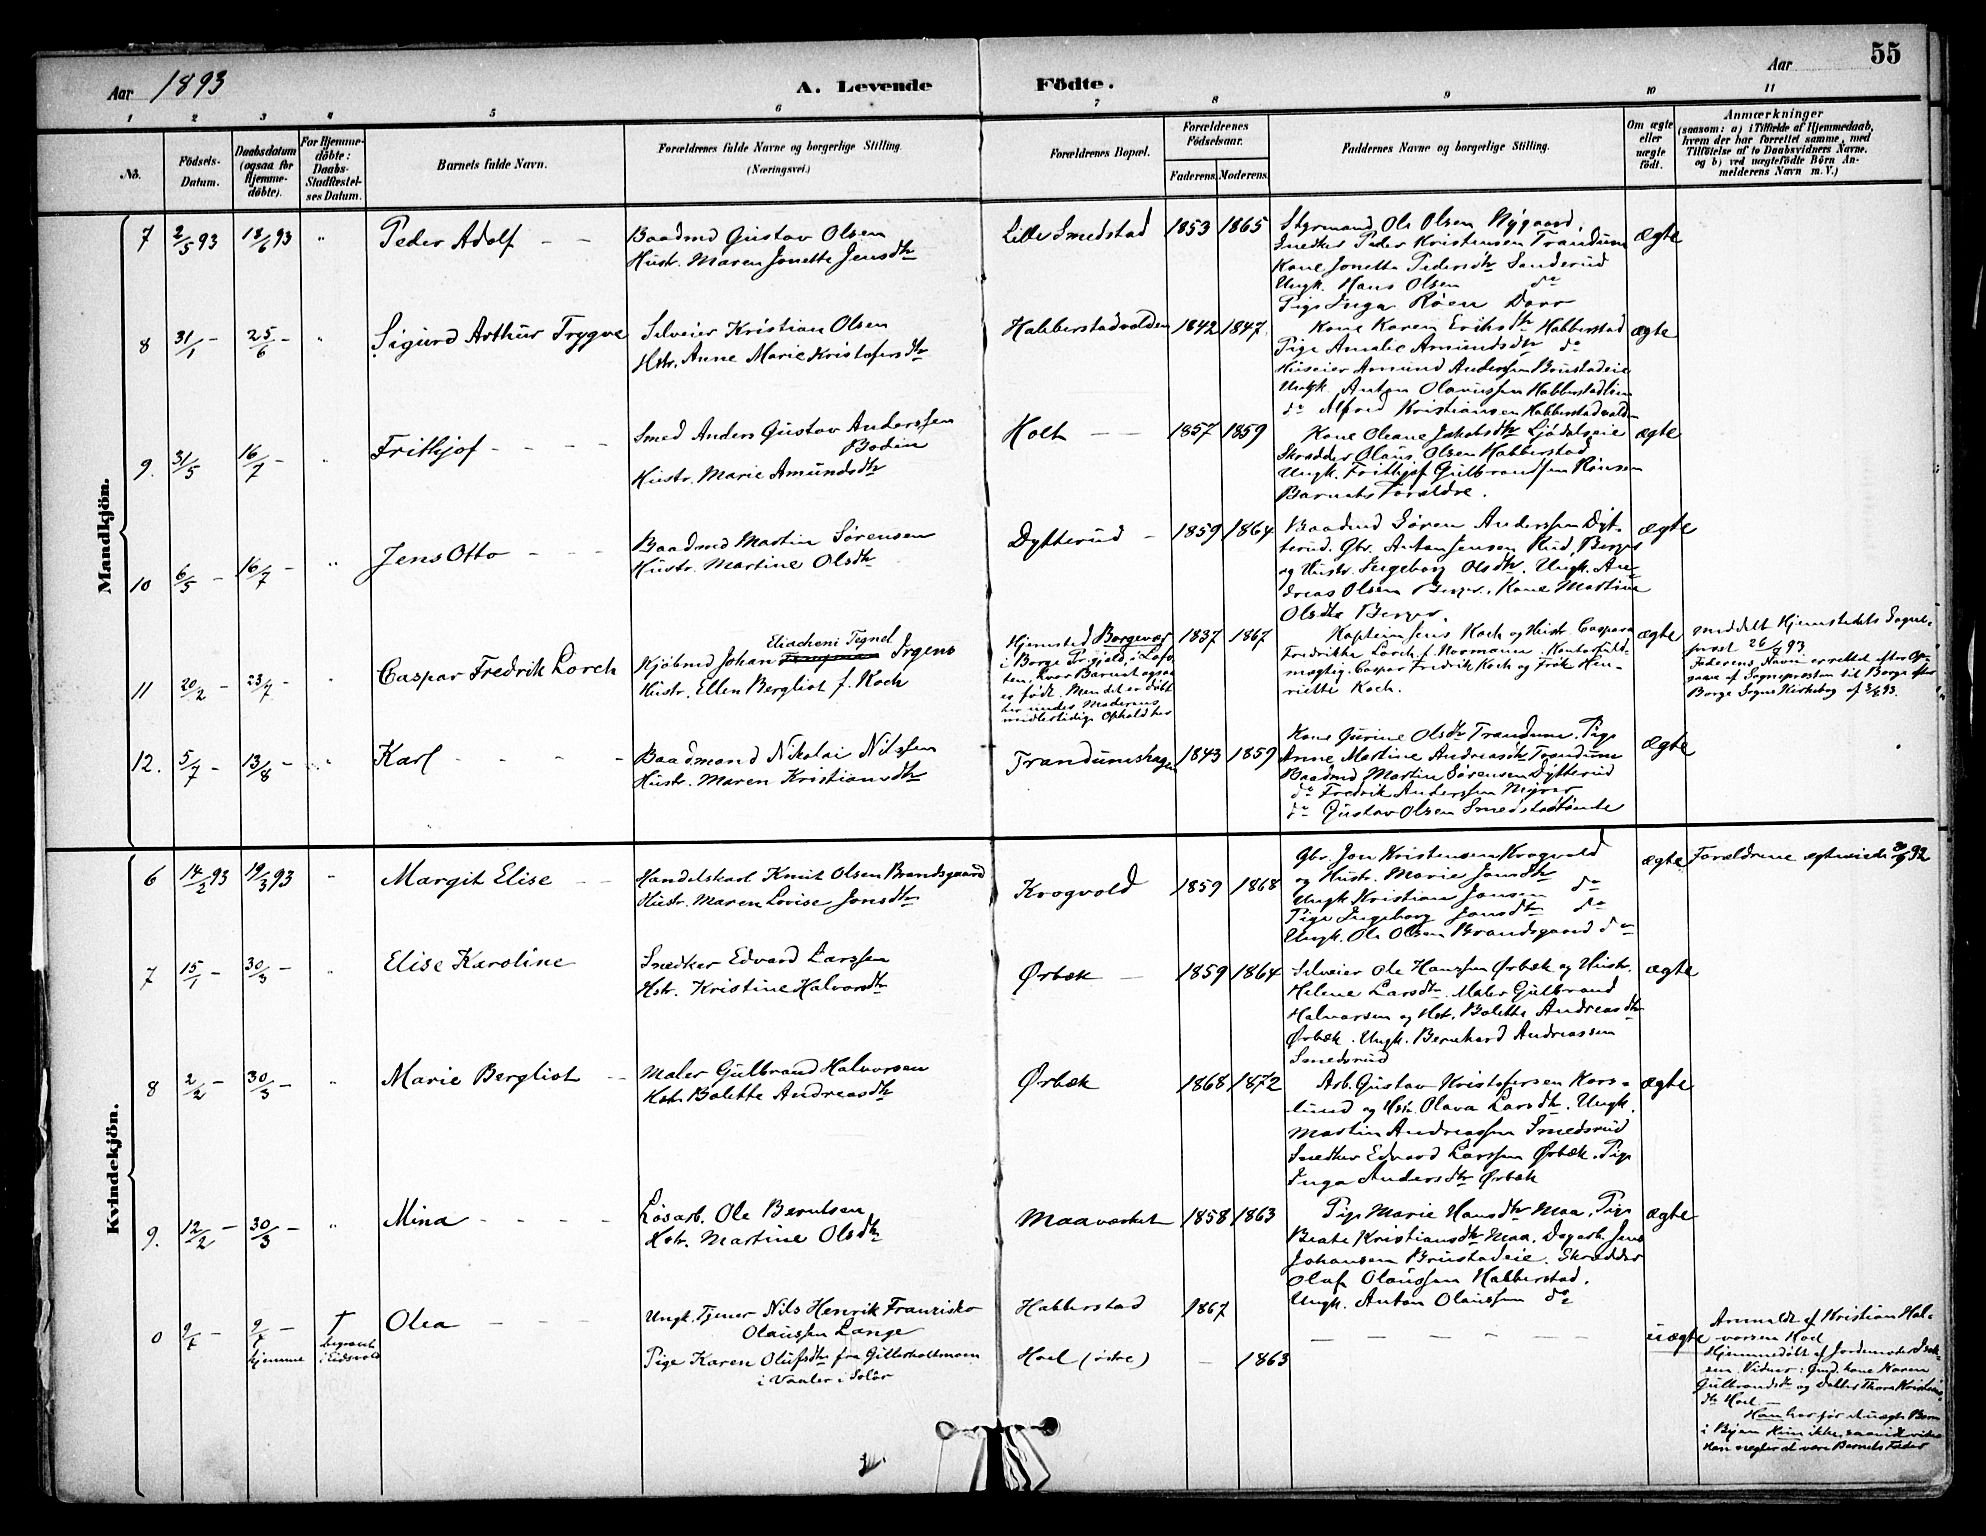 55
Aar 1893
A. Levende Födte.
Aar
1 2 3 4 5 6 7 8 9 10 11
No.
Födsels-Datum.
Daabsdatum (ogsaa for Hjemme-döbte).
For Hjemme-döbte: Daabs-Stadfæstel-ses Datum.
Barnets fulde Navn.
Forældrenes fulde Navne og borgerlige Stilling.
(Næringsvei.)
Forældrenes Bopæl.
Forældrenes Födselsaar.
Faderens. Moderens.
Faddernes Navne og borgerlige Stilling.
Om ægte eller uægte födt.
Anmærkninger
(saasom: a) i Tilfælde af Hjemmedaab, hvem der har forrettet samme, med Tilföielse af to Daabsvidners Navne, og b) ved uægtefödte Börn An-melderens Navn m. V.)
Mandkjön.
7 2/5 93 18/6 93 " Peder Adolf
Baadmd Gustav Olsen
Hustr. Maren Jonette Jensdtr
Lille Smedstad 1853 1865
Styrmand Ole Olsen Nygaard,
Snedker Peder Kristensen Trandum
Kone Jonette Pedersdtr Sanderud
Ungk. Hans Olsen do
Pige Inga Røen Dorr
ægte
8 31/1 - 25/6 - " Sigurd Arthur Trygve
Selveier Kristian Olsen
Hstr. Anne Marie Kristofersdtr
Habberstadvolden 1842 1847
Kone Karen Eriksdtr Habberstad
Pige Amalie Amundsdtr do
Huseier Amund Anderssen Brustadeie
Ungk. Anton Olaussen Habberstadlien
do Alfred Kristiansen Habberstadvolden
ægte
9. 31/5 - 16/7 - " Frithjof
Smed Anders Gustav Anderssen
Bodin
Hustr. Marie Amundsdtr
Holt 1857 1859
Kone Oleane Jakobsdtr Ljødalseie
Skrædder Olaus Olsen Habberstad
Ungk. Frithjof Gulbrandsen Rønsen
Barnets Forældre.
ægte
10 6/5 - 16/7 - " Jens Otto
Baadmd Martin Sørensen
Hustr. Martine Olsdtr
Dytterud 1859 1864
Baadmd Søren Anderssen Dyt-
terud. Gbr. Anton Jensen Rud, Berger
og Hustr. Ingeborg Olsdtr. Ungk. An-
dreas Olsen Berger. Kone Martine
Olsdtr Berger.
ægte
11 20/2 - 23/7 - " Caspar Fredrik Lorch
Eliacheni Tegnel
Kjøbmd Johan Irgens
Hustr. Ellen Bergliot f. Koch
Hjemsted Borgevær
i Borge Prgjeld, i Lofo-
ten, hvor Barnet ogsaa
er født. Men det er døbt
her under Moderens
midlertidige Ophold her
1837 1867
Kaptein Jens Koch og Hustr. Caspara
Fredrikke Lorch f. Normann. Kontorfuld-
mægtig Caspar Fredrik Koch og Frøk. Hen-
riette Koch.
ægte
Meddelt Hjemstedets Sogne-
prest 26/7 93
Faderens Navn er rettet efter Op-
gave af Sognepresten til Borge efter
Borge Sogns Kirkebog af 3/8 93.
12. 5/7 - 13/8 - " Karl
Baadmand Nikolai Nilssen
Hustr. Maren Kristiansdtr
Trandumshagen 1843 1859
Kone Gurine Olsdtr Trandum. Pige
Anne Martine Andreasdtr Trandum
Baadmd Martin Sørensen Dytterud
do Fredrik Anderssen
do Gustav Olsen Smedstad
ægte
Kvindekjön.
6 14/2 93 19/3 93 " Margit Elise
Handelskarl Knut Olsen Brandsgaard
Hustr. Maren Lovise Jonsdtr
Krogvold 1859 1868
Gbr. Jon Kristensen Krogvold
og Hustr. Marie Jonsdtr
Ungk Kristian Jonsen do
Pige Ingeborg Jonsdtr do
Ungk. Ole Olsen Brandsgaard do
ægte
Forældrene egteviede 92
7 15/1 - 30/3 - " Elise Karoline
Snedker Edvard Larssen
Hstr. Kristine Halvorsdtr
Ørbæk 1859 1864
Selveier Ole Hanssen Ørbæk og Hustr.
Helene Larsdtr. Maler Gulbrand
Halvorsen og Hst. Bolette Andreasdtr
Ørbæk. Ungk. Bernhard Andreassen
Smedsrud
ægte
8 2/2 - 30/3 - " Marie Bergliot
Maler Gulbrand Halvorsen
Hstr. Bolette Andreasdtr
Ørbæk 1868 1872
Arb. Gustav Kristofersen Kors-
lund og Hstr. Olava Larsdtr. Ungk.
Martin Andreassen Smedsrud
Snedker Edvard Larssen Ørbæk. Pige
Inga Andersdtr Ørbæk
ægte
9. 12/2 - 30/3 - " Mina
Løsarb. Ole Berntsen
Hstr. Martine Olsdtr
Maaværket 1858 1863
Pige Marie Hansdtr Maa, Pige
Beate Kristiansdtr Maa. Dagarb. Jens
Johansen Brustadeie. Skrædder
Olaf Olaussen Habberstad.
Ungk. Anton Olaussen do
ægte
0 9/7 - 9/7 - hjemme † begravet i Eidsvold Olea
Ungk. Tjener Nils Henrik Franzisko
Olaussen Lange
Pige Karen Olufsdtr fra Gitterholtmoen
i Vaaler i Solør
Habberstad 1867
Hoel (østre) - 1863
uægte
Anmeldt af Kristian Hal-
vorsen Hoel
Hjemmedøbt af Jordemoder
Vidner: Gmd. kone Karen
Gulbrandsdtr og Datter Thora Kristians-
dtr Hoel -
Han har før uægte Børn
i Byen Hun ikke, saavidt vides
Han negter at være Barnets Fader